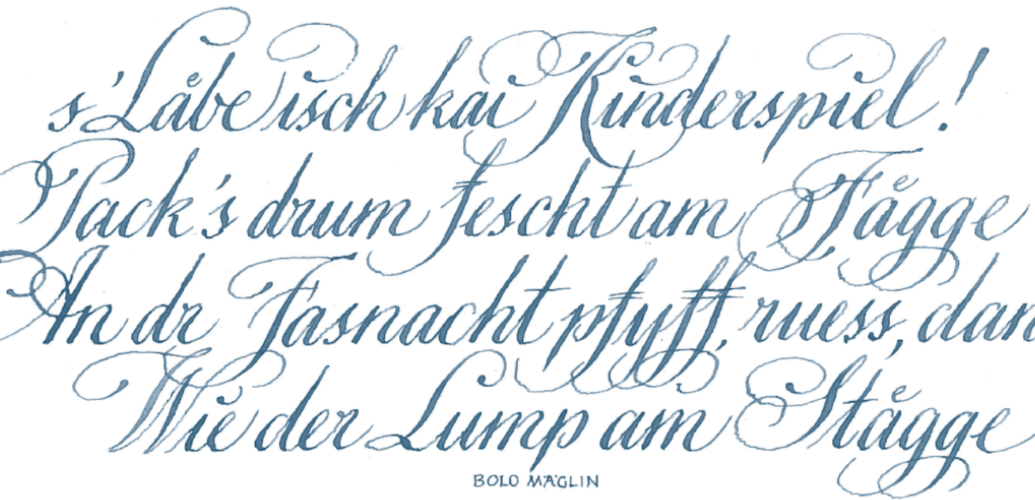 s'Låbe isch kai Kinderspiel!
Pack's drum fescht am Fågge
An dr Fasnacht pfyff, ruess,
Wie der Lump am Stågge
BOLO MÄGLIN